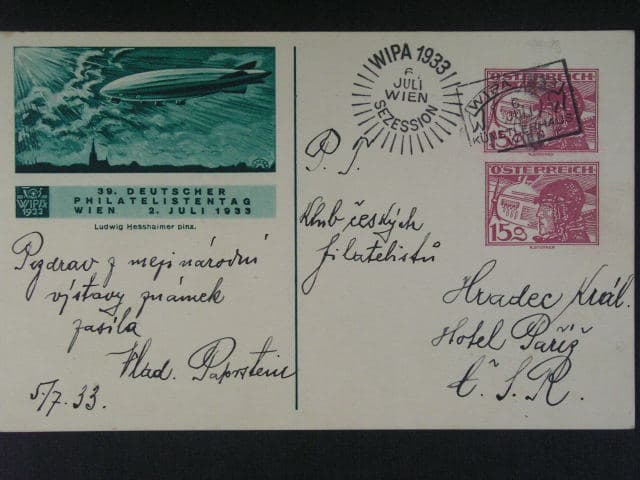 39. DEUTSCHER
PHILATELISTENTAG
WIEN 2. JULI 1933
WIPA
1933
Ludwig Hesshaimer pinx.
Pozdrav z mezinárodní
výstavy známek
zasílá
Vlad. Paprstein
5./7.33.
WIPA 1933
6
JULI
WIEN
SEZESSION
WIPA
6
JULI
KÜNSTLERHAUS
ÖSTERREICH
15
ÖSTERREICH
15g
P. T.
Klub českých
filatelistů
Hradec Král.
Hotel Paříž
Č. S. R.